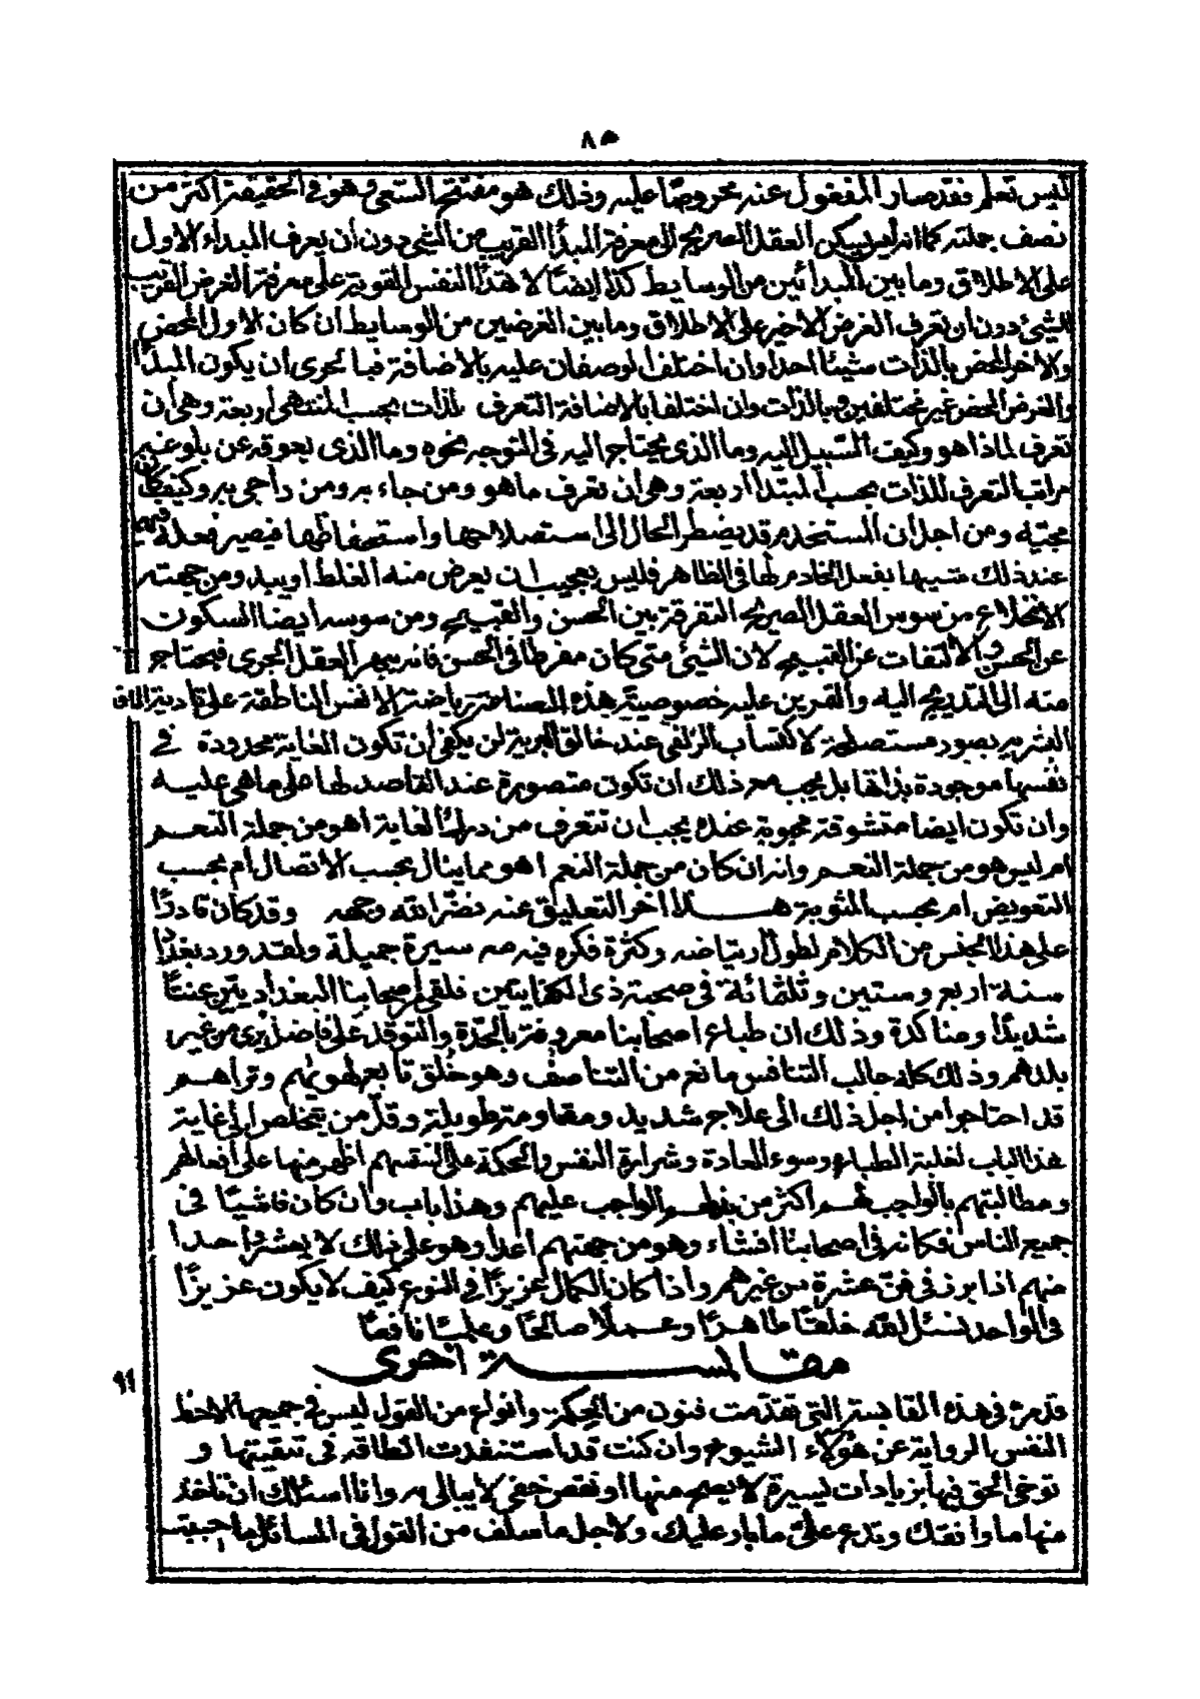 ٨٥
ليس تعلم فقد صار المغفول عنه محروصًا عليه وذلك هو مفتتح السعى وهو فى الحقيقة اكثر من
نصف جملته كما انه ليس يمكن العقل الصريح الى معرفة المبدأ القريب من الشئ دون أن يعرف المبداء الاول
على الاطلاق وما بين المبدائين من الوسايط كذا ايضًا لا النفس القوية على معرفة الغرض القريب
الشئ دون ان تعرف الغرض الاخير على الاطلاق وما بين الغرضين من الوسايط ان كان الاول المحض
والاخر المحض بالذات شيئًا احدا وان اختلف الوصفان عليه بالاضافة فبالحرى أن يكون المبدأ
والغرض المحض غير مختلفين بالذات وان اختلفا بالاضافة التعرف لذات بحسب المنتهى أربعة وهى أن
تعرف لماذا هو وكيف السبيل اليه وما الذى يحتاج اليه فى التوجه نحوه وما الذى يعوقه عن بلوغه
مراتب التعرف للذات بحسب المبتدا أربعة وهى ان تعرف ما هو ومن جاء به ومن داعى به وكيف كان
مجئيه ومن اجل أن المستخدم قد يضطر الحال الى استصلاحها واستحفاظها فيصير فعله
عند ذلك شبيها بفعل الخادم لها فى الظاهر فليس بعجيب ان يعرض منه الغلط أو يبد ومن جهته
الانخلاع من سوس العقل الصريح التفرقة بين الحسن والقبيح ومن سوسه أيضا السكون
عن الحسن والالتفات عن القبيح لان الشئ متى كان مفرطا فى الحسن فانه يبهر العقل الجرى فيحتاج
منه الى التدريج اليه والتمرين عليه خصوصية هذه الصناعة رياضة الانفس الناطقة على
البشريه بصور مستصلحة لاكتساب الزلفى عند خالق البرية لن يكفى أن تكون الغاية محدودة فى
نفسها موجودة بذاتها بل يجب مع ذلك ان تكون متصورة عند القاصد لها على ماهى عليه
وان تكون ايضا متشوقة محبوبة عنده يجب ان تتعرف من درك الغاية أهو من جملة النعم
ام ليس هو من جملة النعم وانه ان كان من جملة النعم اهو مما ينال بحسب الاتصال أم بحسب
التعويض ام بحسب المثوبة هذا اخر التعليق عنه نضّر الله وجهه وقد كان قادرًا
على هذا الجنس من الكلام لطول ارتياضه وكثرة فكره فيه مع سيرة جميلة ولقد ورد بغداد
سنة اربع وستين وثلثمائة فى صحبة ذى الكفايتين فلقى من أصحابنا البغداديين عنتًا
شديدًا ومناكدة وذلك ان طباع اصحابنا معروفة بالحدّة والتوقد على فاضل يرى من غير
بلدهم وذلك كله جالب التنافس مانع من التناصف وهو خُلق تابع لهويتهم وتراهم
قد احتاجوا من اجل ذلك الى علاج شديد ومقاومة طويلة وقلّ من يتخلص الى غاية
هذا الباب لغلبة الطباع وسوء العادة وشرارة النفس والحكة على انفسهم اظهر منها على افعالهم
ومطالبتهم بالواجب لهم اكثر من بذلهم الواجب عليهم وهذا باب وان كان فاشيًا فى
جميع الناس فكانه فى اصحابنا افشاء وهو من جهتهم اعدا وهو على ذلك لا يعشر احدا
منهم اذا برز فى فن عشرة من غيرهم واذا كان الكمال عزيزًا فى النوع كيف لا يكون عزيزًا
فى الواحد نسئل الله خلقًا طاهرًا وعملًا صالحًا وعلمًا نافعًا
مقابسة اخرى
٩١
قد مرّ فى هذه المقابسة التى تقدّمت فنون من الحكمة وانواع من القول ليس فى جميعها الاحظ
النفس الرواية عن هؤلاء الشيوخ وان كنت قد استنفدت الطاقة فى تنقيتها و
توخى الحق فيها بزيادات يسيرة لا يصح منها او نقص خفى لا يبالى به وانا اسئلك ان تاخذ
منها ما وافقك وتدع علىّ ما بار عليك ولاجل ما سلف من القول فى المسائل ما احببت